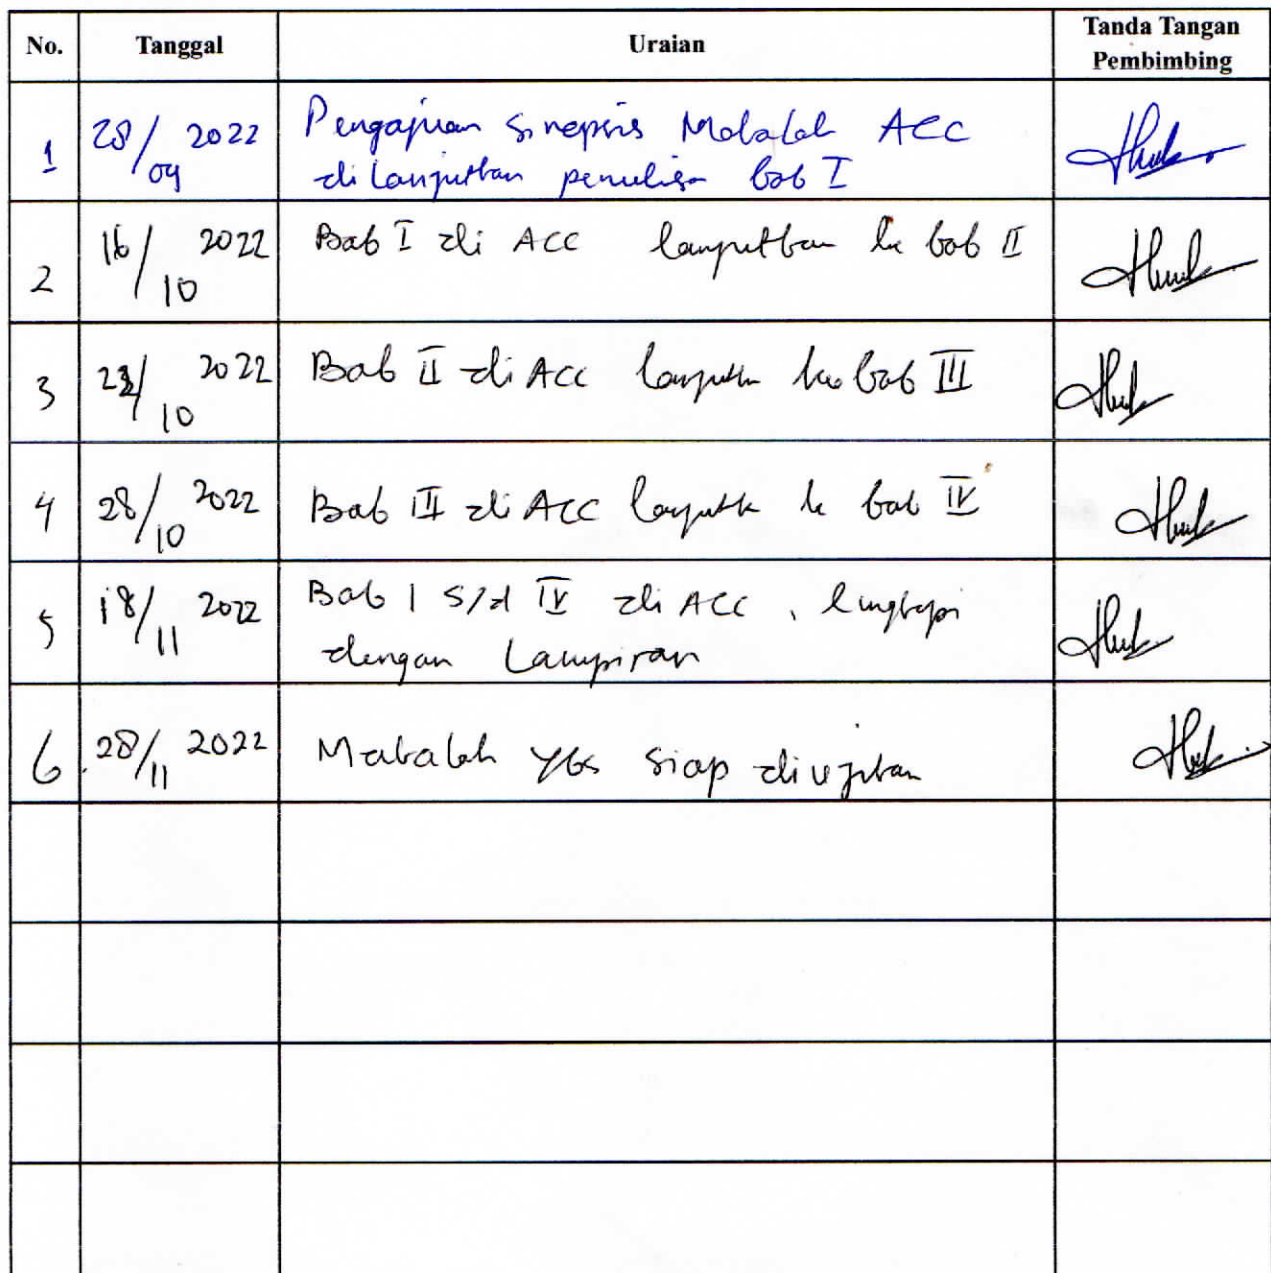 No. Tanggal Uraian Tanda Tangan
Pembimbing
1 28/09 2022 Pengajuan Sinopsis Makalah ACC
dilanjutkan penulisan bab I
2 16/10 2022 Bab I di ACC lanjutkan ke bab II
3 /10 2022 Bab II di ACC lanjutkan ke bab III
4 28/10 2022 Bab III di ACC lanjutkan ke bab IV
5 18/11 2022 Bab I S/d IV di ACC, lengkapi
dengan Lampiran
6 28/11 2022 Makalah ybs siap diujikan